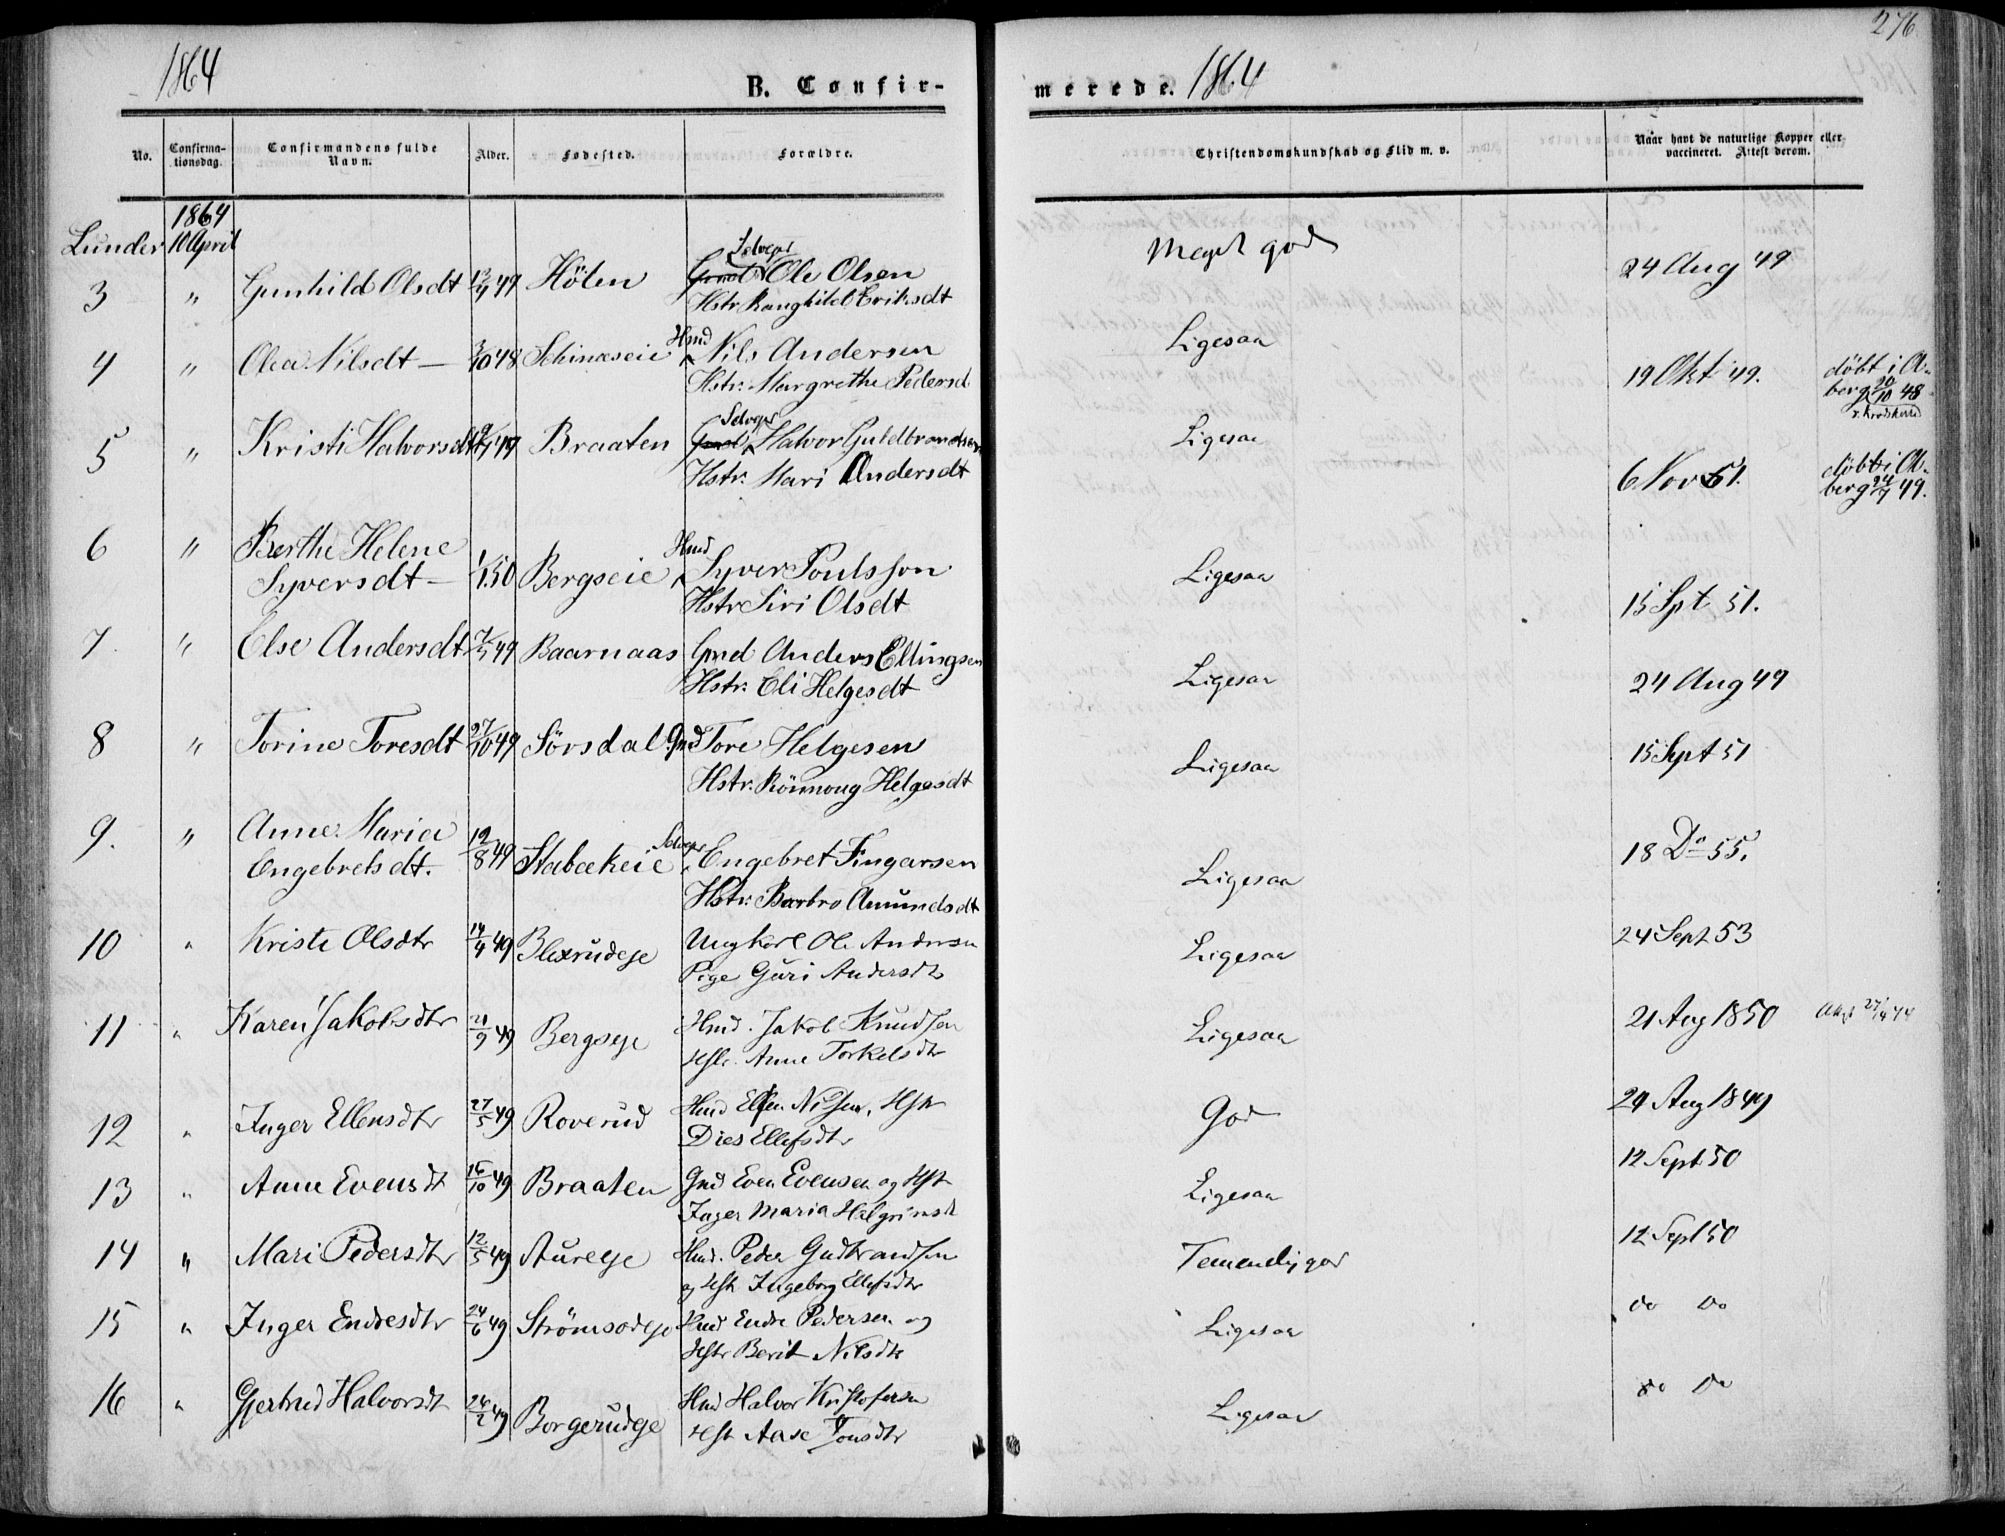 1864
B. Confir-
merede.
1864
276
No.
Confirma-
tionsdag.
Confirmandens fulde
Navn.
Alder.
Fødested.
Forældre.
Christendomskundskab og Flid m. v.
Naar havt de naturlige Kopper eller
vaccineret. Attest derom.
1864
Lunder 10 April
3 " Gunhild Olsdt 49 Hölen Gmd Selveyr Ole Olsen
Hstr. Ranghild Eriksdt
Meget god
24 Aug 49
4 " Olea Nilsdt 48 Hmd Nils Andersen
Hstr. Margrethe Pedersd
Ligesaa
19 Okt 49.
döbt i
berg 20/10 48
5 " Kristi Halvorsdt 49 Braaten Gmd Selveyr Halvor Guldbrandsen
Hstr. Mari Andersdt
Ligesaa
6 Nov 51.
döbt i
berg 24/7 49.
6 " Berthe Helene
Syversdt 1/1 50 Bergseie Hmd Syver Poulsson
Hstr Siri Olsdt
Ligesaa
15 Spt 51.
7. " Else Andersdt 49 Baarnaas Gmd Anders Ellingsen
Hstr. Eli Helgesdt
Ligesaa
24 Aug 49
8 " Torine Toresdt 27/10 49 Sörsdal Gmd Tore Helgesen
Hstr. Rönnoug Helgesdt
Ligesaa
15 Sept 51
9. " Anne Maria
Engebretsdt. 19/8 49 Stabækeie Selveyr Engebret Fingarsen
Hstr. Barbro Amundsdt
Ligesaa
18 Do 55.
10 " Kristi Olsdtr 14/9 49 Blexrudeje Ungkarl Ole Andersen
Pige Guri Andersdtr
Ligesaa
24 Sept 53
11 " Karen Jakobsdtr 21/9 49 Bergseje Hmd. Jakob Knudsen
Hstr. Anne Torkelsdtr
Ligesaa
21 Aug 1850
12 " Inger Ellensdtr 27/5 49 Roverud Hmd Ellen Nilsen, Hstr
Dies Ellefsdtr
God
24 Aug 1849
13 " Anne Evensdt 16/10 49 Braaten Gmd Even Evensen og Hstr
Inger Maria Halgrimsd
Ligesaa
12 Sept 50
14 " Mari Pedersdtr 12/5 49 Aureje Hmd. Peder Gudbrandsen
og Hstr Ingeborg Ellefsdtr
Temmelig god
12 Sept 50
15 " Inger Endresdtr 24/6 49 Strömsodeje Hmd Endre Pedersen og
Hstr Berit Nilsdtr
Ligesaa
do do
16 " Gjertrud Halvorsdt 26/2 49 Borgerudeje Hmd Halvor Kristofersen
Hstr Aase Tonsdtr
Ligesaa
do do